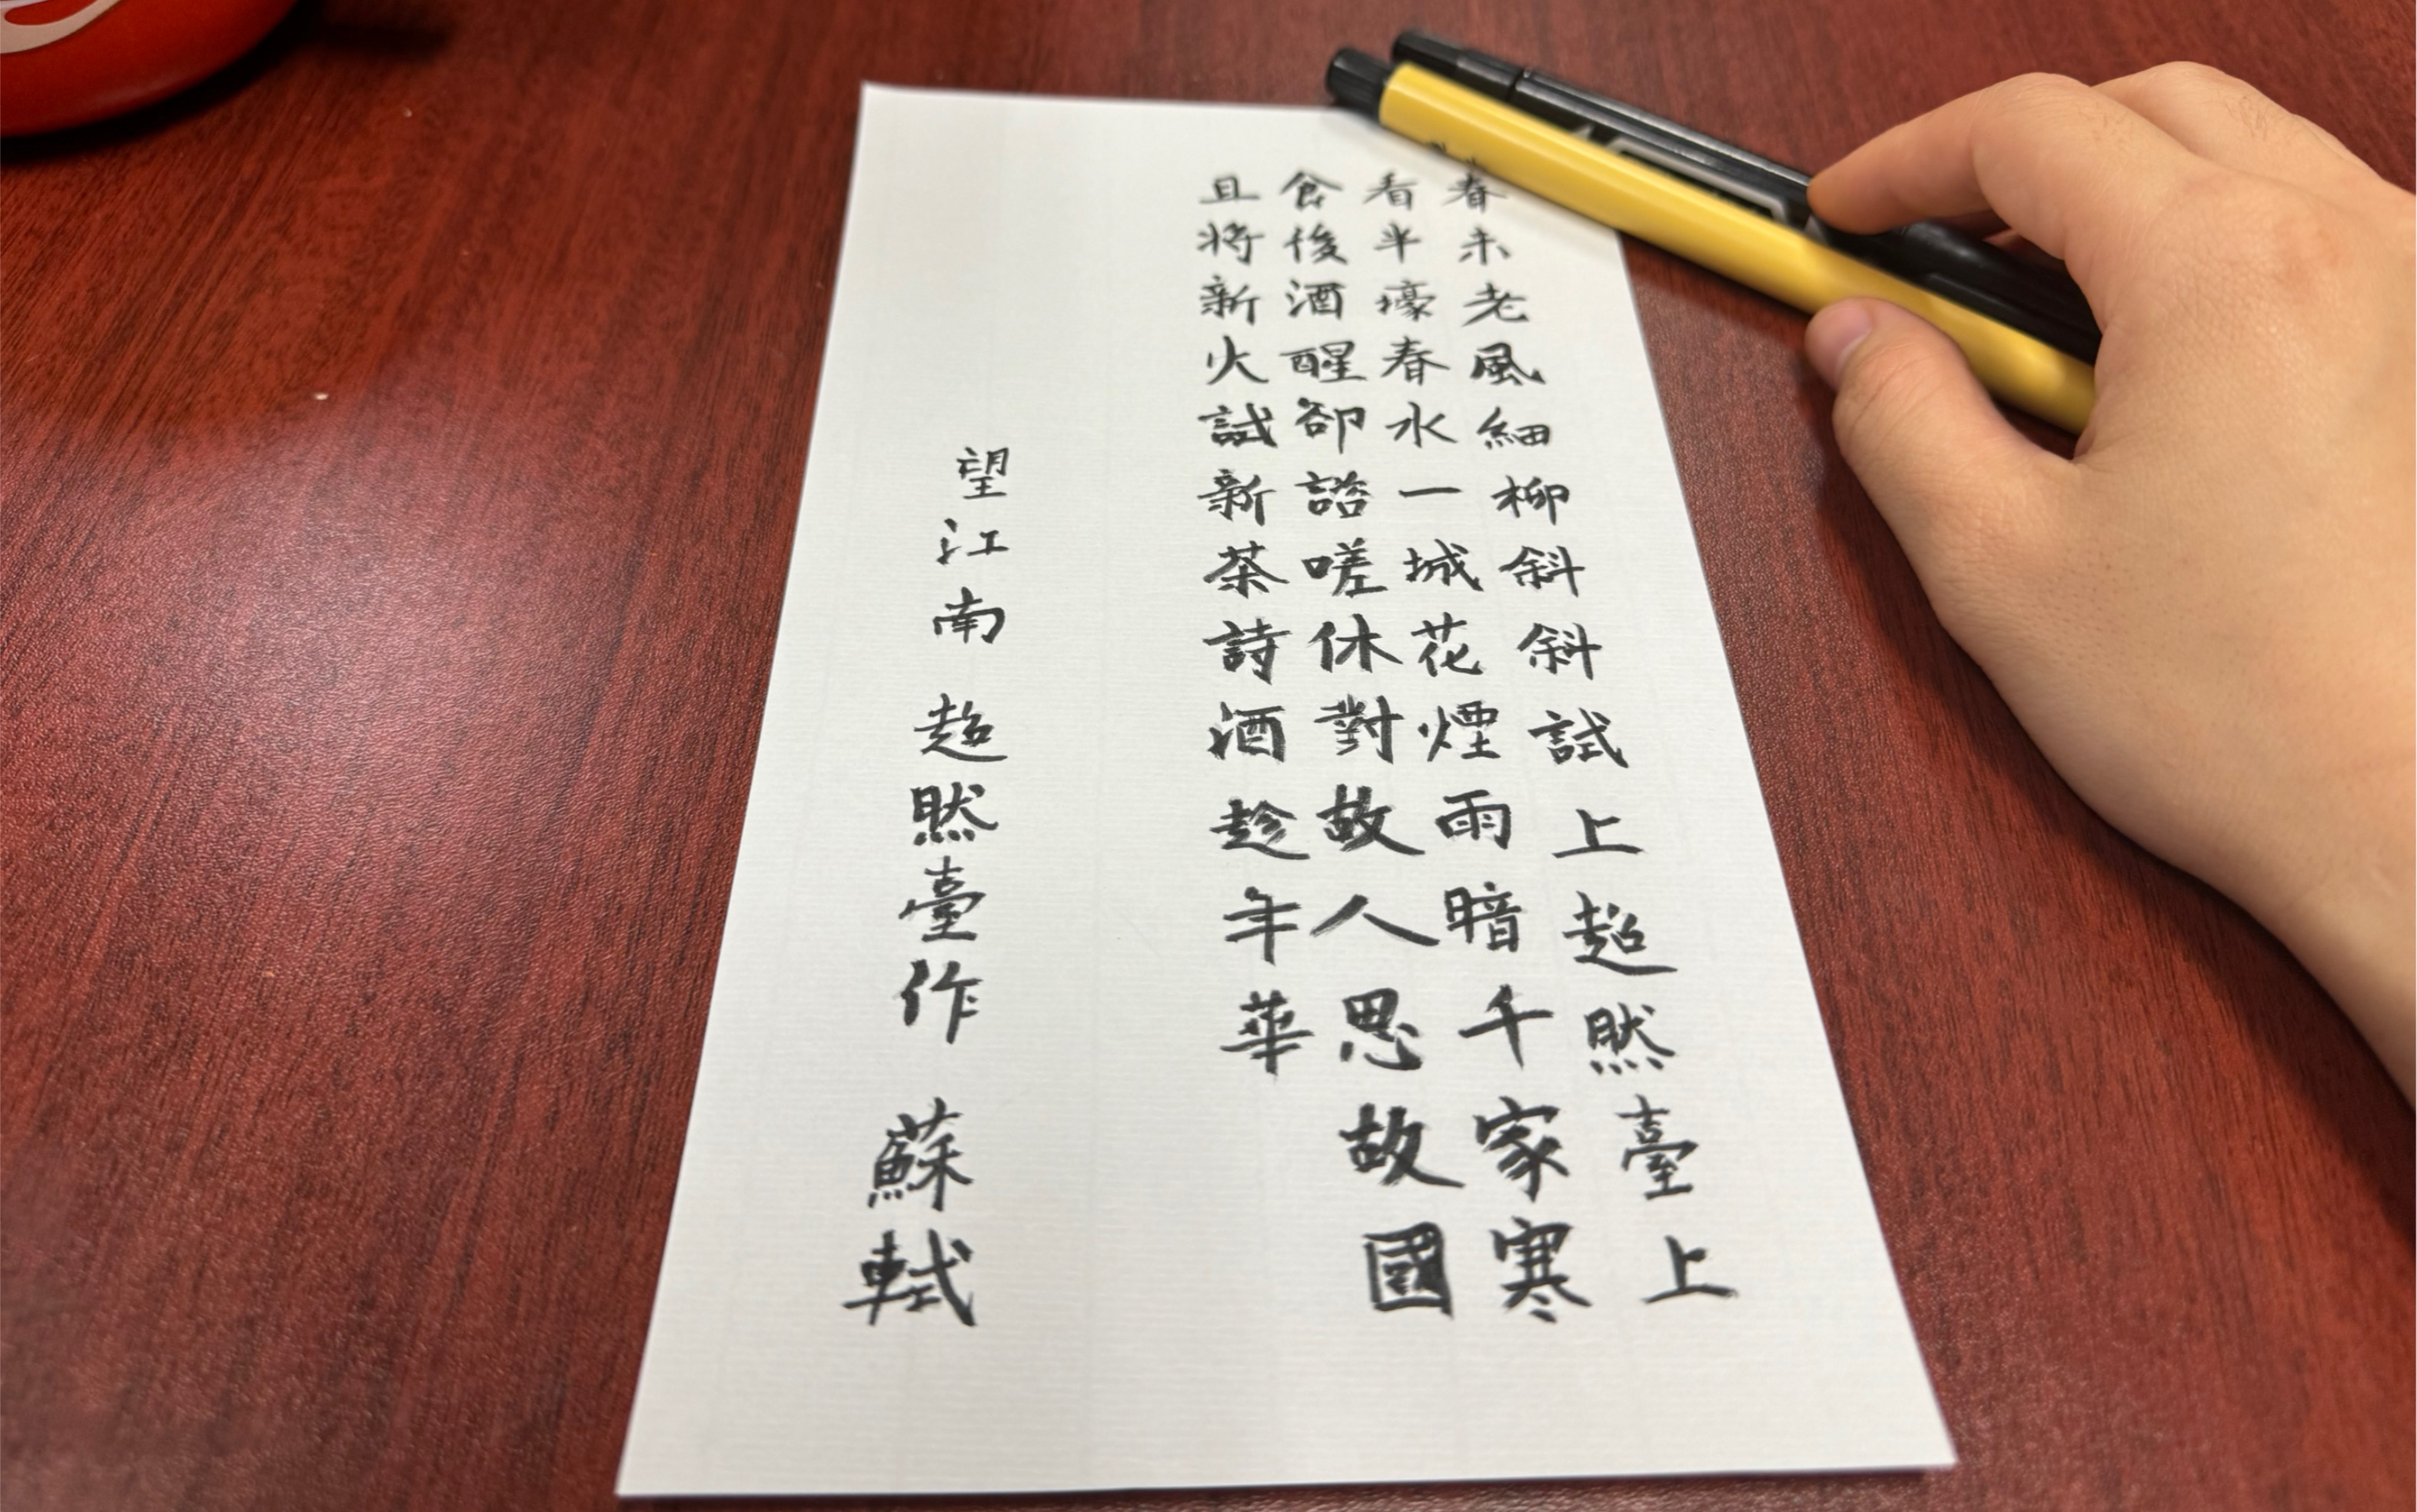 春未老風細柳斜斜試上超然臺上
看半壕春水一城花煙雨暗千家寒
食後酒醒卻諮嗟休對故人思故國
且將新火試新茶詩酒趁年華
望江南 超然臺作 蘇軾